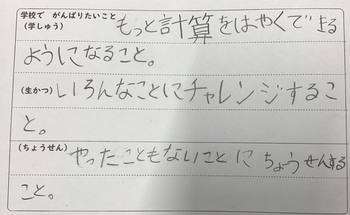 学校で がんばりたいこと
(学しゅう) もっと計算をはやくできる
ようになること。
(生かつ) いろんなことにチャレンジするこ
と。
(ちょうせん) やったこともないことにちょうせんする
こと。